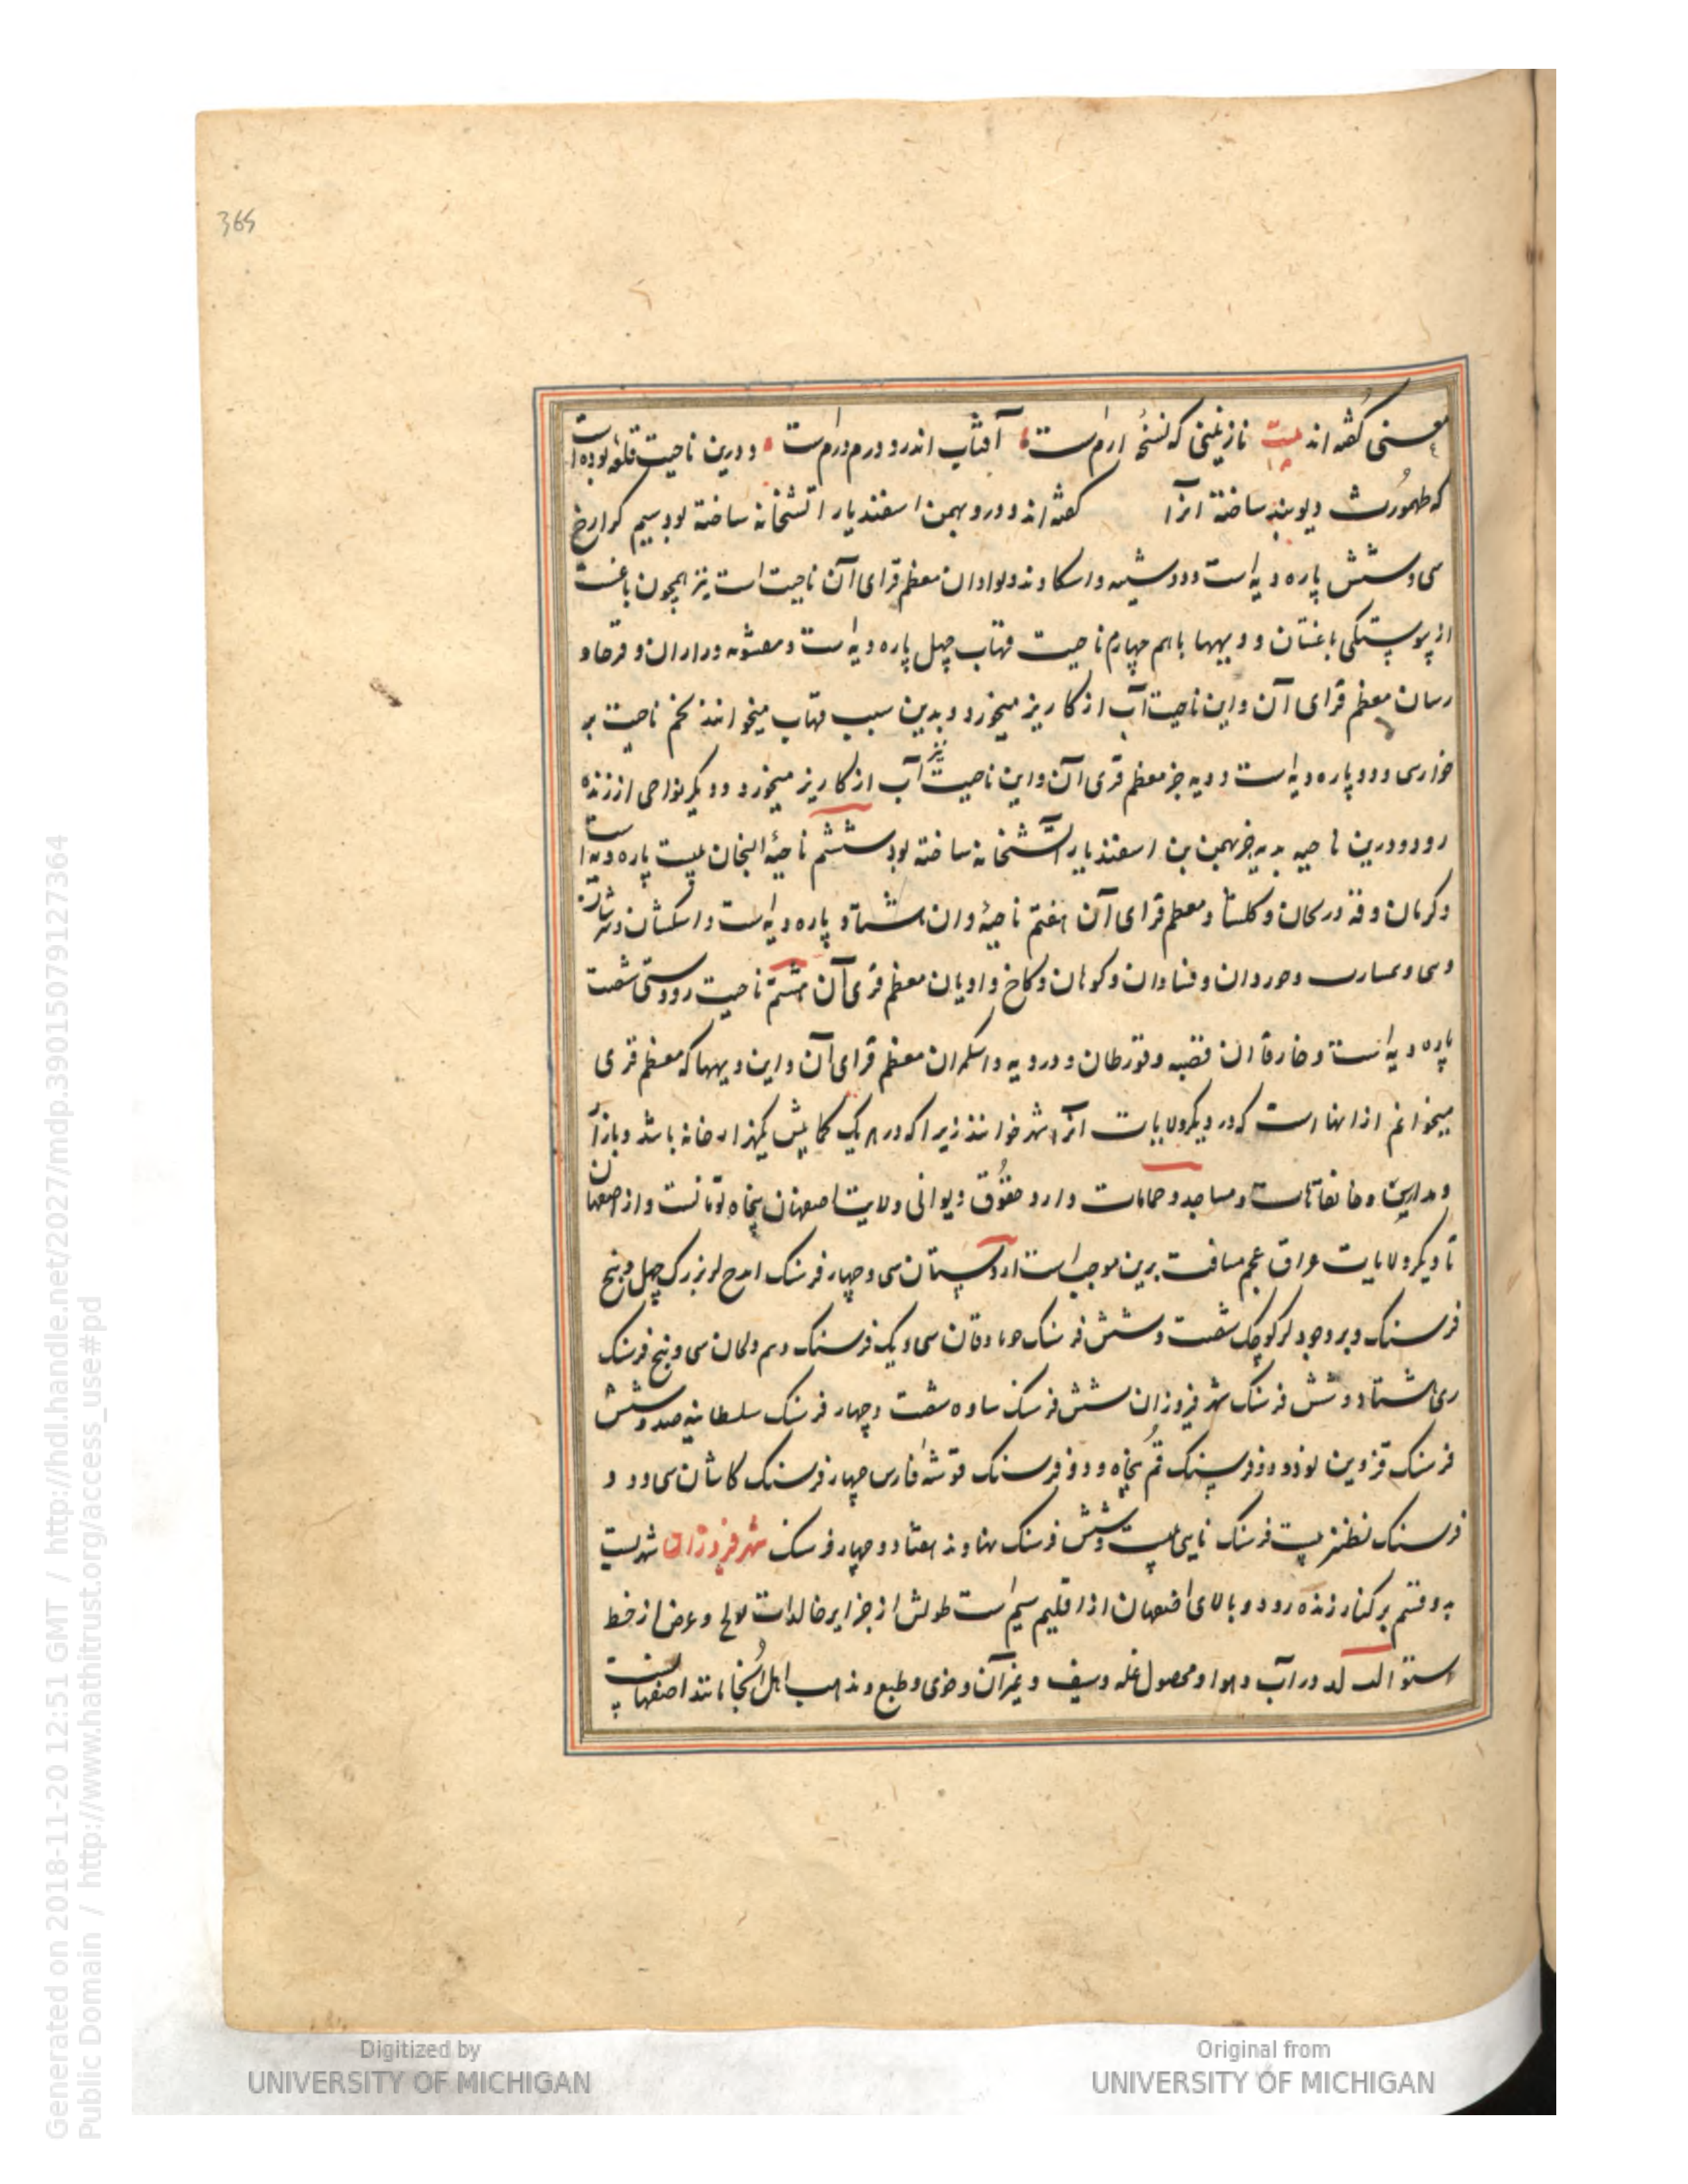 365
معنی گفته اند بیت نازنینی که نسخهٔ ارم است آفتاب اندرو درم درم است و درین ناحیت قلعه بوده است
که طهمورث دیوبند ساخته انرا گفته اند و درو بهمن اسفندیار اتشخانه ساخته بود سیم کرارج
سی و شش پاره دیه است و دشته و اسکاوند و لوادان معظم قرای آن ناحیت است نیز همچون باغیست
از پیوستگی باغستان و دیهها باهم چهارم ناحیت قهاب چهل پاره دیه است و معشوقه و راران و قرحاو
رسان معظم قرای آن و این ناحیت آب از کاریز میخورد و بدین سبب قهاب میخوانند پنجم ناحیت بر
خوارسی و دو پاره دیه است و دیه جز معظم قری آن و این ناحیت نیز آب از کاریز میخورد و دیگر نواحی از زنده
رود و درین ناحیه بدیه جز بهمن بن اسفندیار آتشخانه ساخته بود ششم ناحیهٔ النجان بیست پاره دیه است
و کرمان و قهدریجان و کلیشاد معظم قرای آن هفتم ناحیهٔ وان هشتاد پاره دیه است و اسکشان
و سی و حوردان و فنادان و کوهان و کاخ و ادیان معظم قری آن هشتم ناحیت رودشتین شصت
پاره دیه است و فارفاآن قصبه و قورطان و درویه و اسکران معظم قرای آن و این دیهها که معظم قری
میخوانم از انها است که در دیگر ولایات آنرا شهر خوانند زیرا که در هر یک کمابیش یکهزار خانه باشد و بازار
و مدارس و خانقاهات و مساجد و حمامات دارد حقوق دیوانی ولایت اصفهان پنجاه تومانست و از اصفهان
تا دیگر ولایات عراق عجم مسافت برین موجب است اردستان سی و چهار فرسنک ایدج لر بزرک چهل و پنج
فرسنک و بروجرد لر کوچک شصت و شش فرسنک جرباذقان سی و یک فرسنک دلیجان سی و پنج فرسنک
ری هشتاد و شش فرسنک شهر فیروزان شش فرسنک ساوه شصت و چهار فرسنک سلطانیه صد و شش
فرسنک قزوین نود و دو فرسنک قم پنجاه و دو فرسنک قوشه فارس چهار فرسنک کاشان سی و دو
فرسنک نطنز بیست فرسنک نایین بیست و شش فرسنک نهاوند هفتاد و چهار فرسنک شهر فیروزان شهریست
به دو قسم بر کنار زنده رود و بالای اصفهان از اقلیم سیم است طولش از جزایر خالدات فو لح و عرض از خط
استوا لب لد در آب و هوا و محصول غله و سیف و غیر آن و خوی و طبع و مذهب اهل آنجا مانند اصفهانیست
Digitized by
UNIVERSITY OF MICHIGAN
Original from
UNIVERSITY OF MICHIGAN
Generated on 2018-11-20 12:51 GMT / http://hdl.handle.net/2027/mdp.39015079127364
Public Domain / http://www.hathitrust.org/access_use#pd